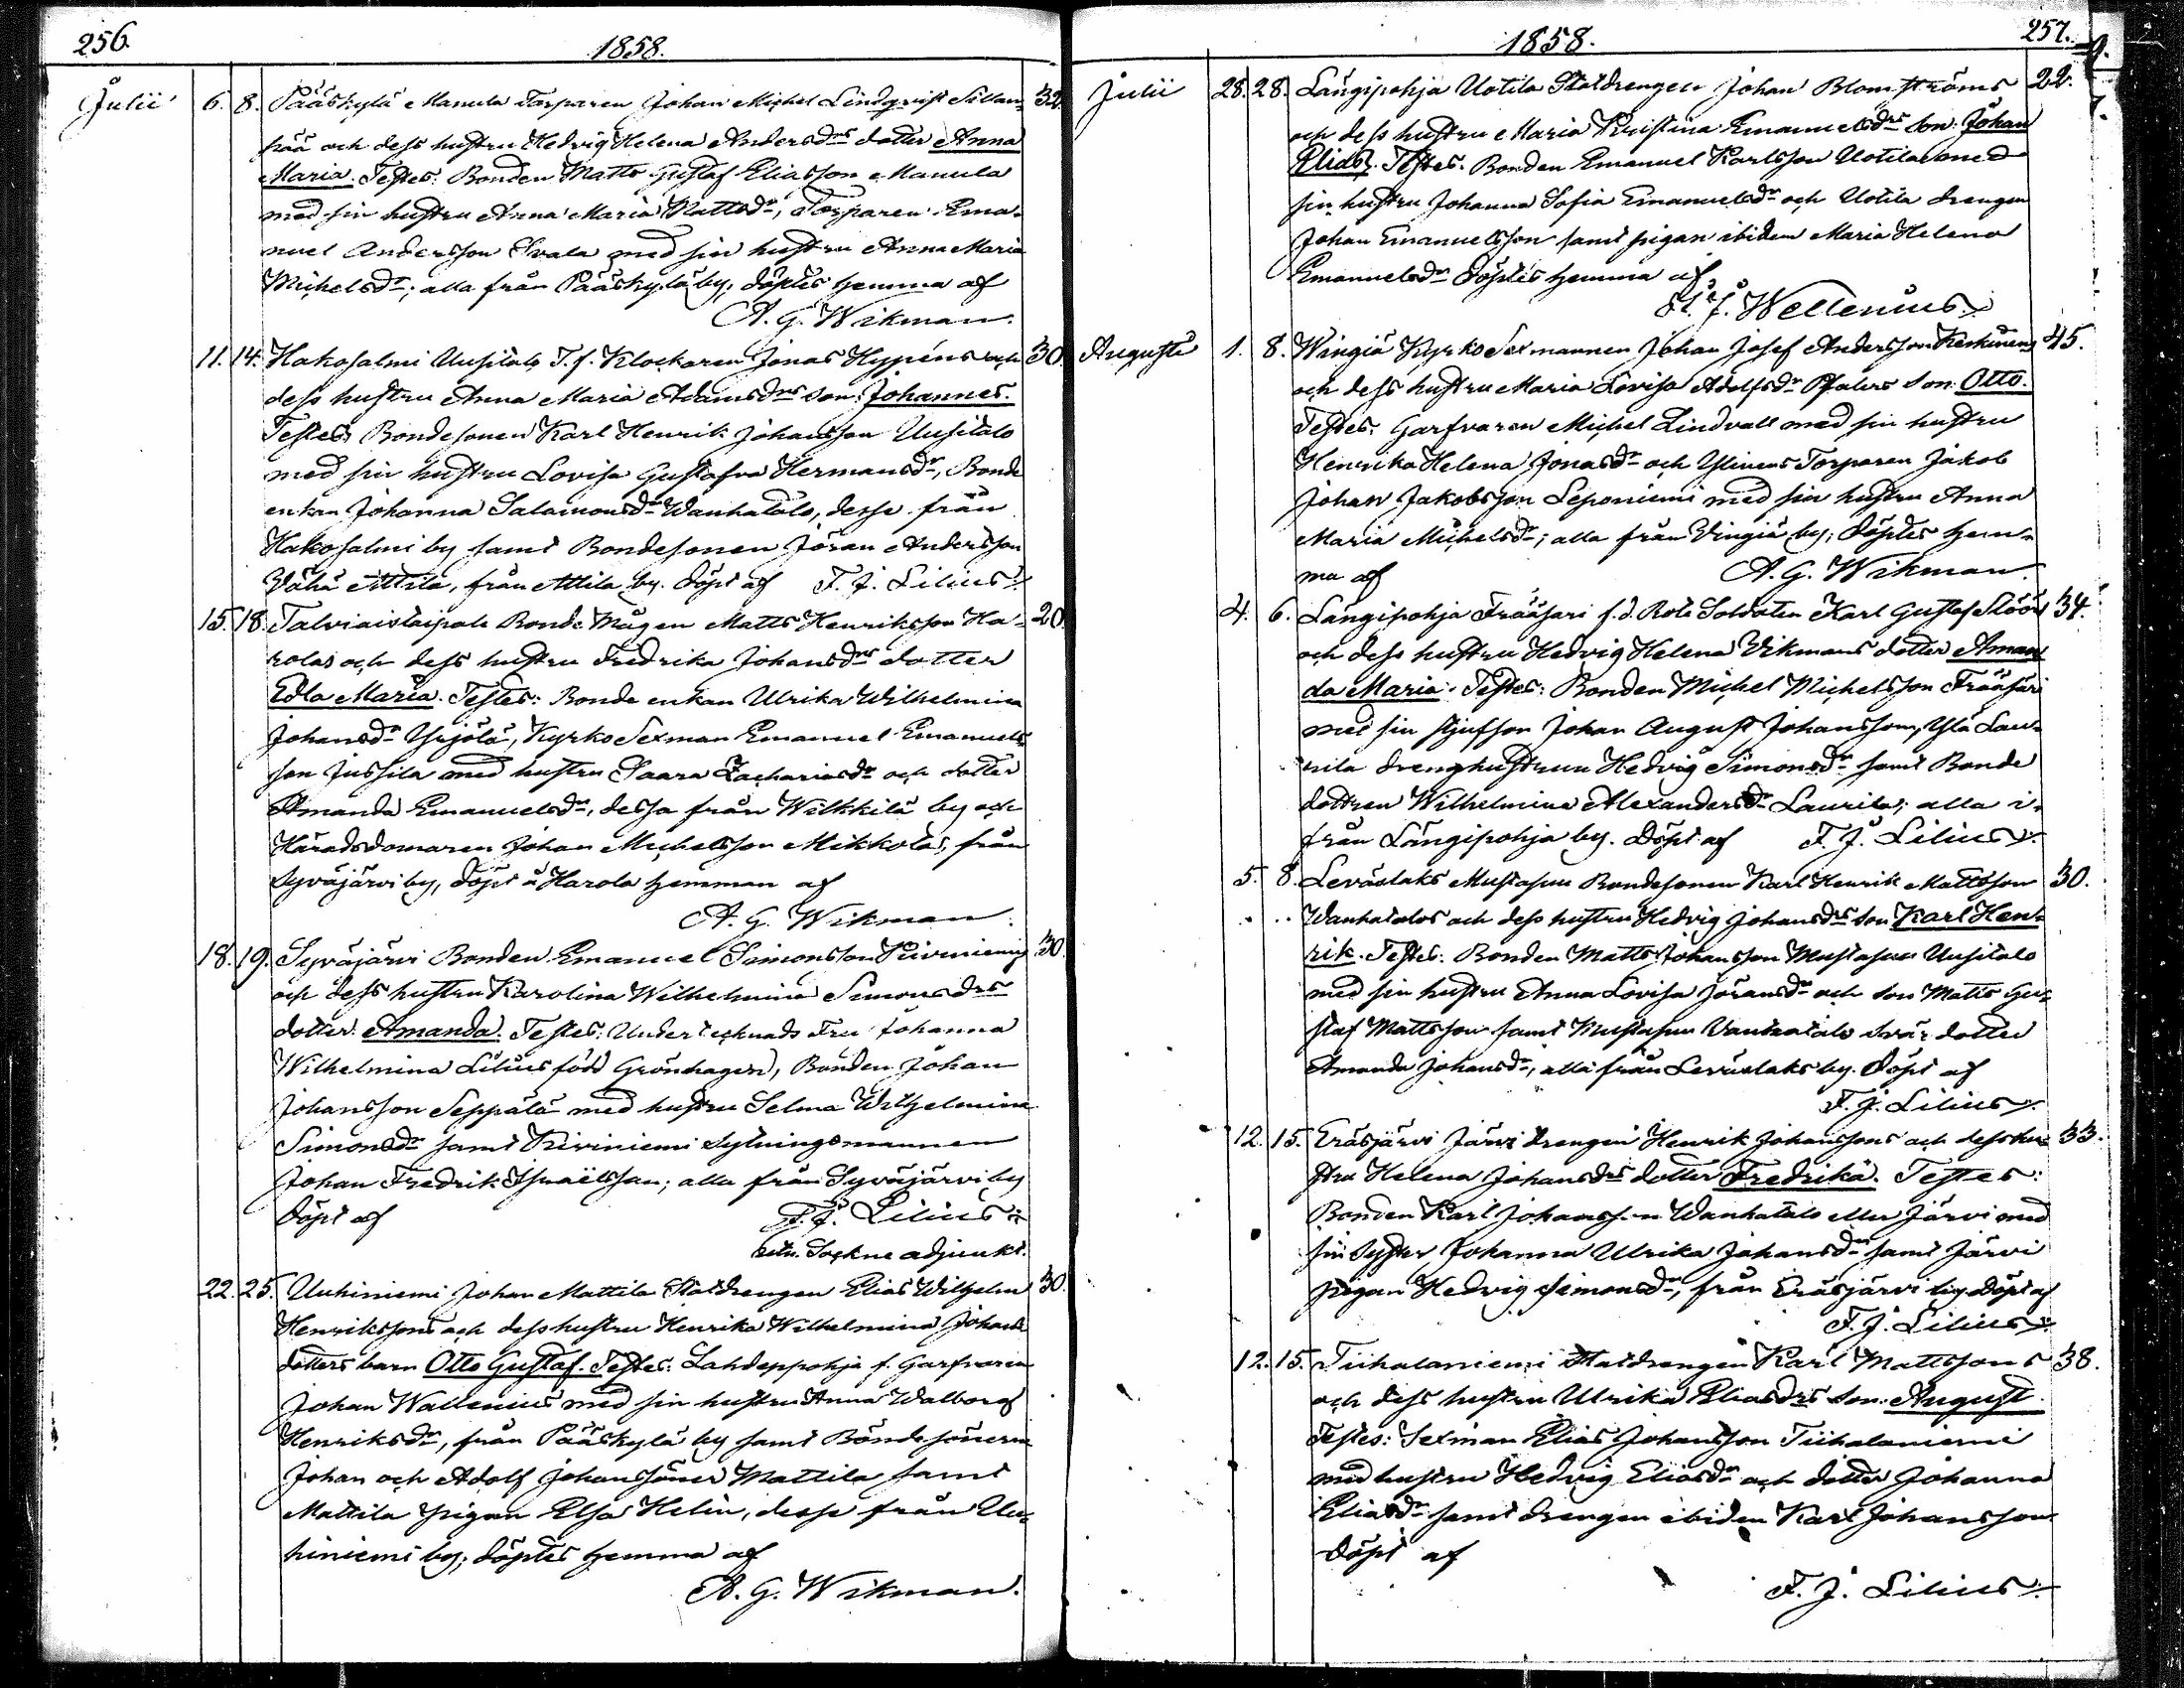 256.
1858.
Julii 6. 8. Pääskylä Manula Torparen Johan Michel Lindqvist Sillan- 32.
pää och dess hustru Hedvig Helena Andersdrs dotter Anna
Maria. Testes: Bonden Matts Gustaf Eliasson Manula
med sin hustru Anna Maria Mattsdr, Torparen Ema-
nuel Andersson Svala med sin hustru Anna Maria
Michelsdr; alla från Pääskylä by, döptes hemma af
A. G. Wikman.
11. 14. Hakosalmi Uusitalo T. f. Klockaren Jonas Hypéns och 30.
dess hustru Anna Maria Adamsdrs son: Johannes.
Testes: Bondesonen Karl Henrik Johansson Uusitalo
med sin hustru Lovisa Gustafva Hermansdr, Bonde
enkan Johanna Salamonsdr Wanhatalo, desse från
Hakosalmi by samt Bondesonen Jöran Andersson
Vähä Attila, från Attila by. Döpt af F. J. Lilius
15. 18. Talviaistaipale Bonde Mågen Matts Henriksson Ha- 20.
rolas och dess hustru Fredrika Johansdrs dotter
Edla Maria. Testes: Bonde enkan Ulrika Wilhelmina
Johansdr Yrjölä, Kyrko Sexman Emanuel Emanuels-
son Jussila med hustru Saara Zachariasdr och dotter
Amanda Emanuelsdr, dessa från Wilkkilä by och
Häradsdomaren Johan Michelsson Mikkola, från
Syväjärvi by, döpt å Harola hemman af
A. G. Wikman.
18. 19. Syväjärvi Bonden Emanuel Simonsson Kiviniemis 30.
och dess hustru Karolina Wilhelmina Simonsdrs
dotter: Amanda. Testes: Undertecknads Fru Johanna
Wilhelmina Lilius född Grönhagen, Bonden Johan
Johansson Seppälä med hustru Selma Wilhelmina
Simonsdr samt Kiviniemi Sytningsmannen
Johan Fredrik Israelsson; alla från Syväjärvi by
Döpt af F. J. Lilius
Sockne adjunkt.
22. 25. Uuhiniemi Johan Mattila Statdrengen Elias Wilhelm 30.
Henrikssons och dess hustru Henrika Wilhelmina Johans
dotters barn Otto Gustaf. Testes: Lahdeppohja f. Garfvaren
Johan Wallenius med sin hustru Anna Walborg
Henriksdr, från Pääskylä by samt Bondesönerna
Johan och Adolf Johanssöner Mattila samt
Mattila pigan Elsa Helin, desse från Uu-
hiniemi by; döptes hemma af
A. G. Wikman.
257.
1858.
Julii 28. 28. Längipohja Uotila Statdrengen Johan Blomströms 22.
och dess hustru Maria Kristina Emanuelsdrs son: Johan
Elias. Testes: Bonden Emanuel Karlsson Uotila med
sin hustru Johanna Sofia Emanuelsdr och Uotila drengen
Johan Emanuelsson samt pigan ibidem Maria Helena
Emanuelsdr döptes hemma af
Wellenius
Augusti 1. 8. Wingiä Kyrko Sexmannen Johan Josef Andersson Keskinens 45.
och dess hustru Maria Lovisa Adolfsdr Pfalers son: Otto.
Testes: Garfvaren Michel Lindvall med sin hustru
Henrika Helena Jonasdr och Ylinens Torparen Jakob
Johan Jakobsson Leponiemi med sin hustru Anna
Maria Michelsdr; alla från Vingiä by; Döptes hem-
ma af A. G. Wikman.
4. 6. Längipohja Frääsari f. d. Rote Soldaten Karl Gustaf Slöörs 34.
och dess hustru Hedvig Helena Vikmans dotter Aman
da Maria. Testes: Bonden Michel Michelsson Frääsari
med sin styfson Johan August Johansson, Ylä Lau-
rila drenghustrun Hedvig Simonsdr samt Bonde
dottren Wilhelmina Alexandersdr Laurila; alla i-
från Längipohja by. Döpt af F. J. Lilius
5. 8. Leväslaks Mustasuu Bondesonen Karl Henrik Mattsson 30.
Wanhatalos och dess hustru Hedvig Johansdrs son Karl Hen-
rik. Testes: Bonden Matts Johansson Mustasuu Uusitalo
med sin hustru Anna Lovisa Jöransdr och son Matts Gu-
staf Mattsson samt Mustasuu Vanhatalo svär dotter
Amanda Johansdr, alla från Leväslaks by. Döpt af
F. J. Lilius
12. 15. Eräsjärvi Järvi drengen Henrik Johanssons och dess hu- 33.
stru Helena Johansdrs dotter Fredrika. Testes:
Bonden Karl Johansson Wanhatalo eller Järvi med
sin Syster Johanna Ulrika Johansdr samt Järvi
pigan Hedvig Simonsdr, från Eräsjärvi by Döpt af
F. J. Lilius
12. 15. Tiihalaniemi Statdrengen Karl Mattssons 38.
och dess hustru Ulrika Eliasdrs son: August.
Testes: Sexman Elias Johansson Tiihalaniemi
med hustru Hedvig Eliasdr och dotter Johanna
Eliasdr samt drengen ibidem Karl Johansson
Döpt af
F. J. Lilius